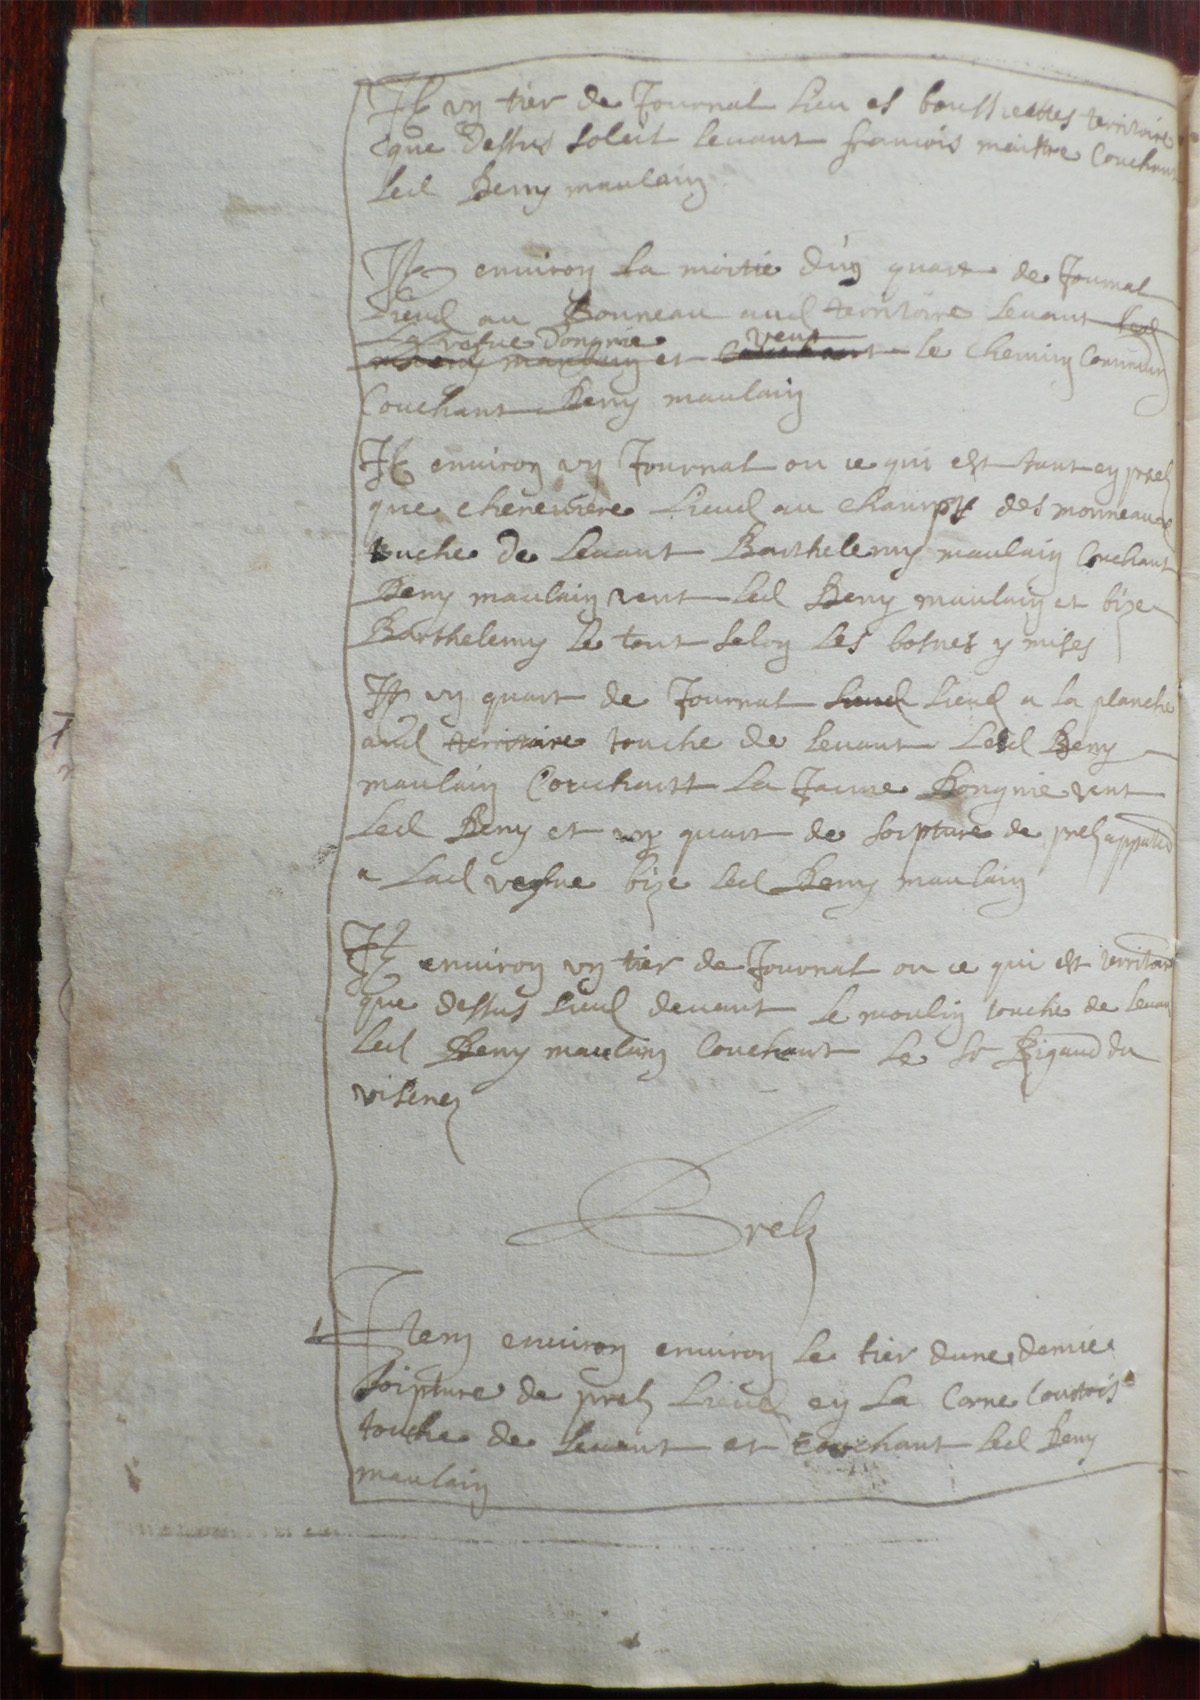 It vn tier de Journal lieu es boussieottes territoire
que dessus soleit leuant francois maistre Couchant
led Beny maulain
It enuiron la moitie dun quart de Journal
Lieud au Bonneau aud territoire leuant led
La vefue Dongnie vent
Beny maulain et Couchant le chemin Commun
Couchant Beny maulain
It enuiron vn Journal ou ce qui est tant en prel
que cheneuiere Lieud au champt des monneaux
touche de leuant Barthelemy maulain Couchant
Beny maulain vent led Beny maulain et bize
Barthelemy le tout selon les bosnes y mises
It vn quart de Journal Lieud Lieud a la planche
aud territoire touche de leuant Led Beny
maulain Couchant La Jaune Bongnie vent
Led Beny et vn quart de soipture de prel appartt
a Lad vefue bize led Beny maulain
It enuiron vn tier de Journal ou ce qui est territoire
que dessus Lieud deuant le moulin touche de leuant
Led Beny maulain Couchant le Sr Rigaud du
visenel
Prelz
Item enuiron enuiron le tier dune demie
soipture de prelz Lieud en La Corne
touche de leuant et Couchant led Beny
maulain